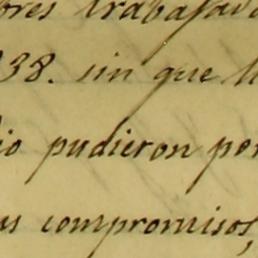 bres trabajad
38. sin que l
io pudieron per
us compromisos,